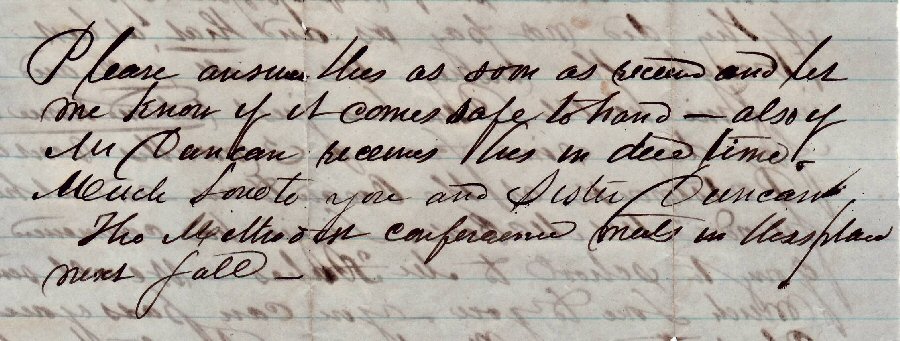 Please answer this as soon as received and let
me know if it comes safe to hand — also if
Mr Duncan receives this in due time.
Much Love to you and Sister Duncan
The Methodist conference meets in this place
next fall —